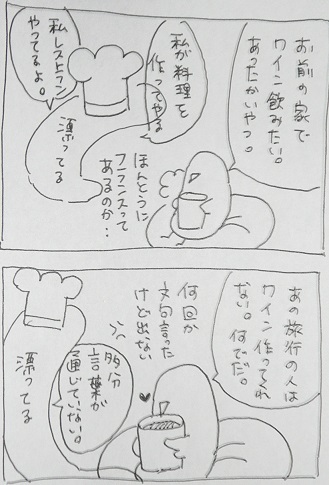 お前の家で
ワイン飲みたい。
あったかいやつ。
私が料理を
作ってやる
私レストラン
やってるよ。
漂ってる
ほんとうに
フランスって
あるのか・・
あの旅行の人は
ワイン作ってくれ
ない。何でだ。
何回か
文句言った
けど出ない
多分
言葉が
通じていない。
漂ってる